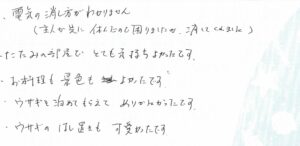 ・電気の消し方がわかりません
(主人が先に休んだので困りましたが、消してくれました)
たたみの部屋でとても気持ちよかったです。
・お料理も景色もよかったです
・ウサギと泊めてもらえてありがたかったです。
・ウサギのはし置きも可愛かったです